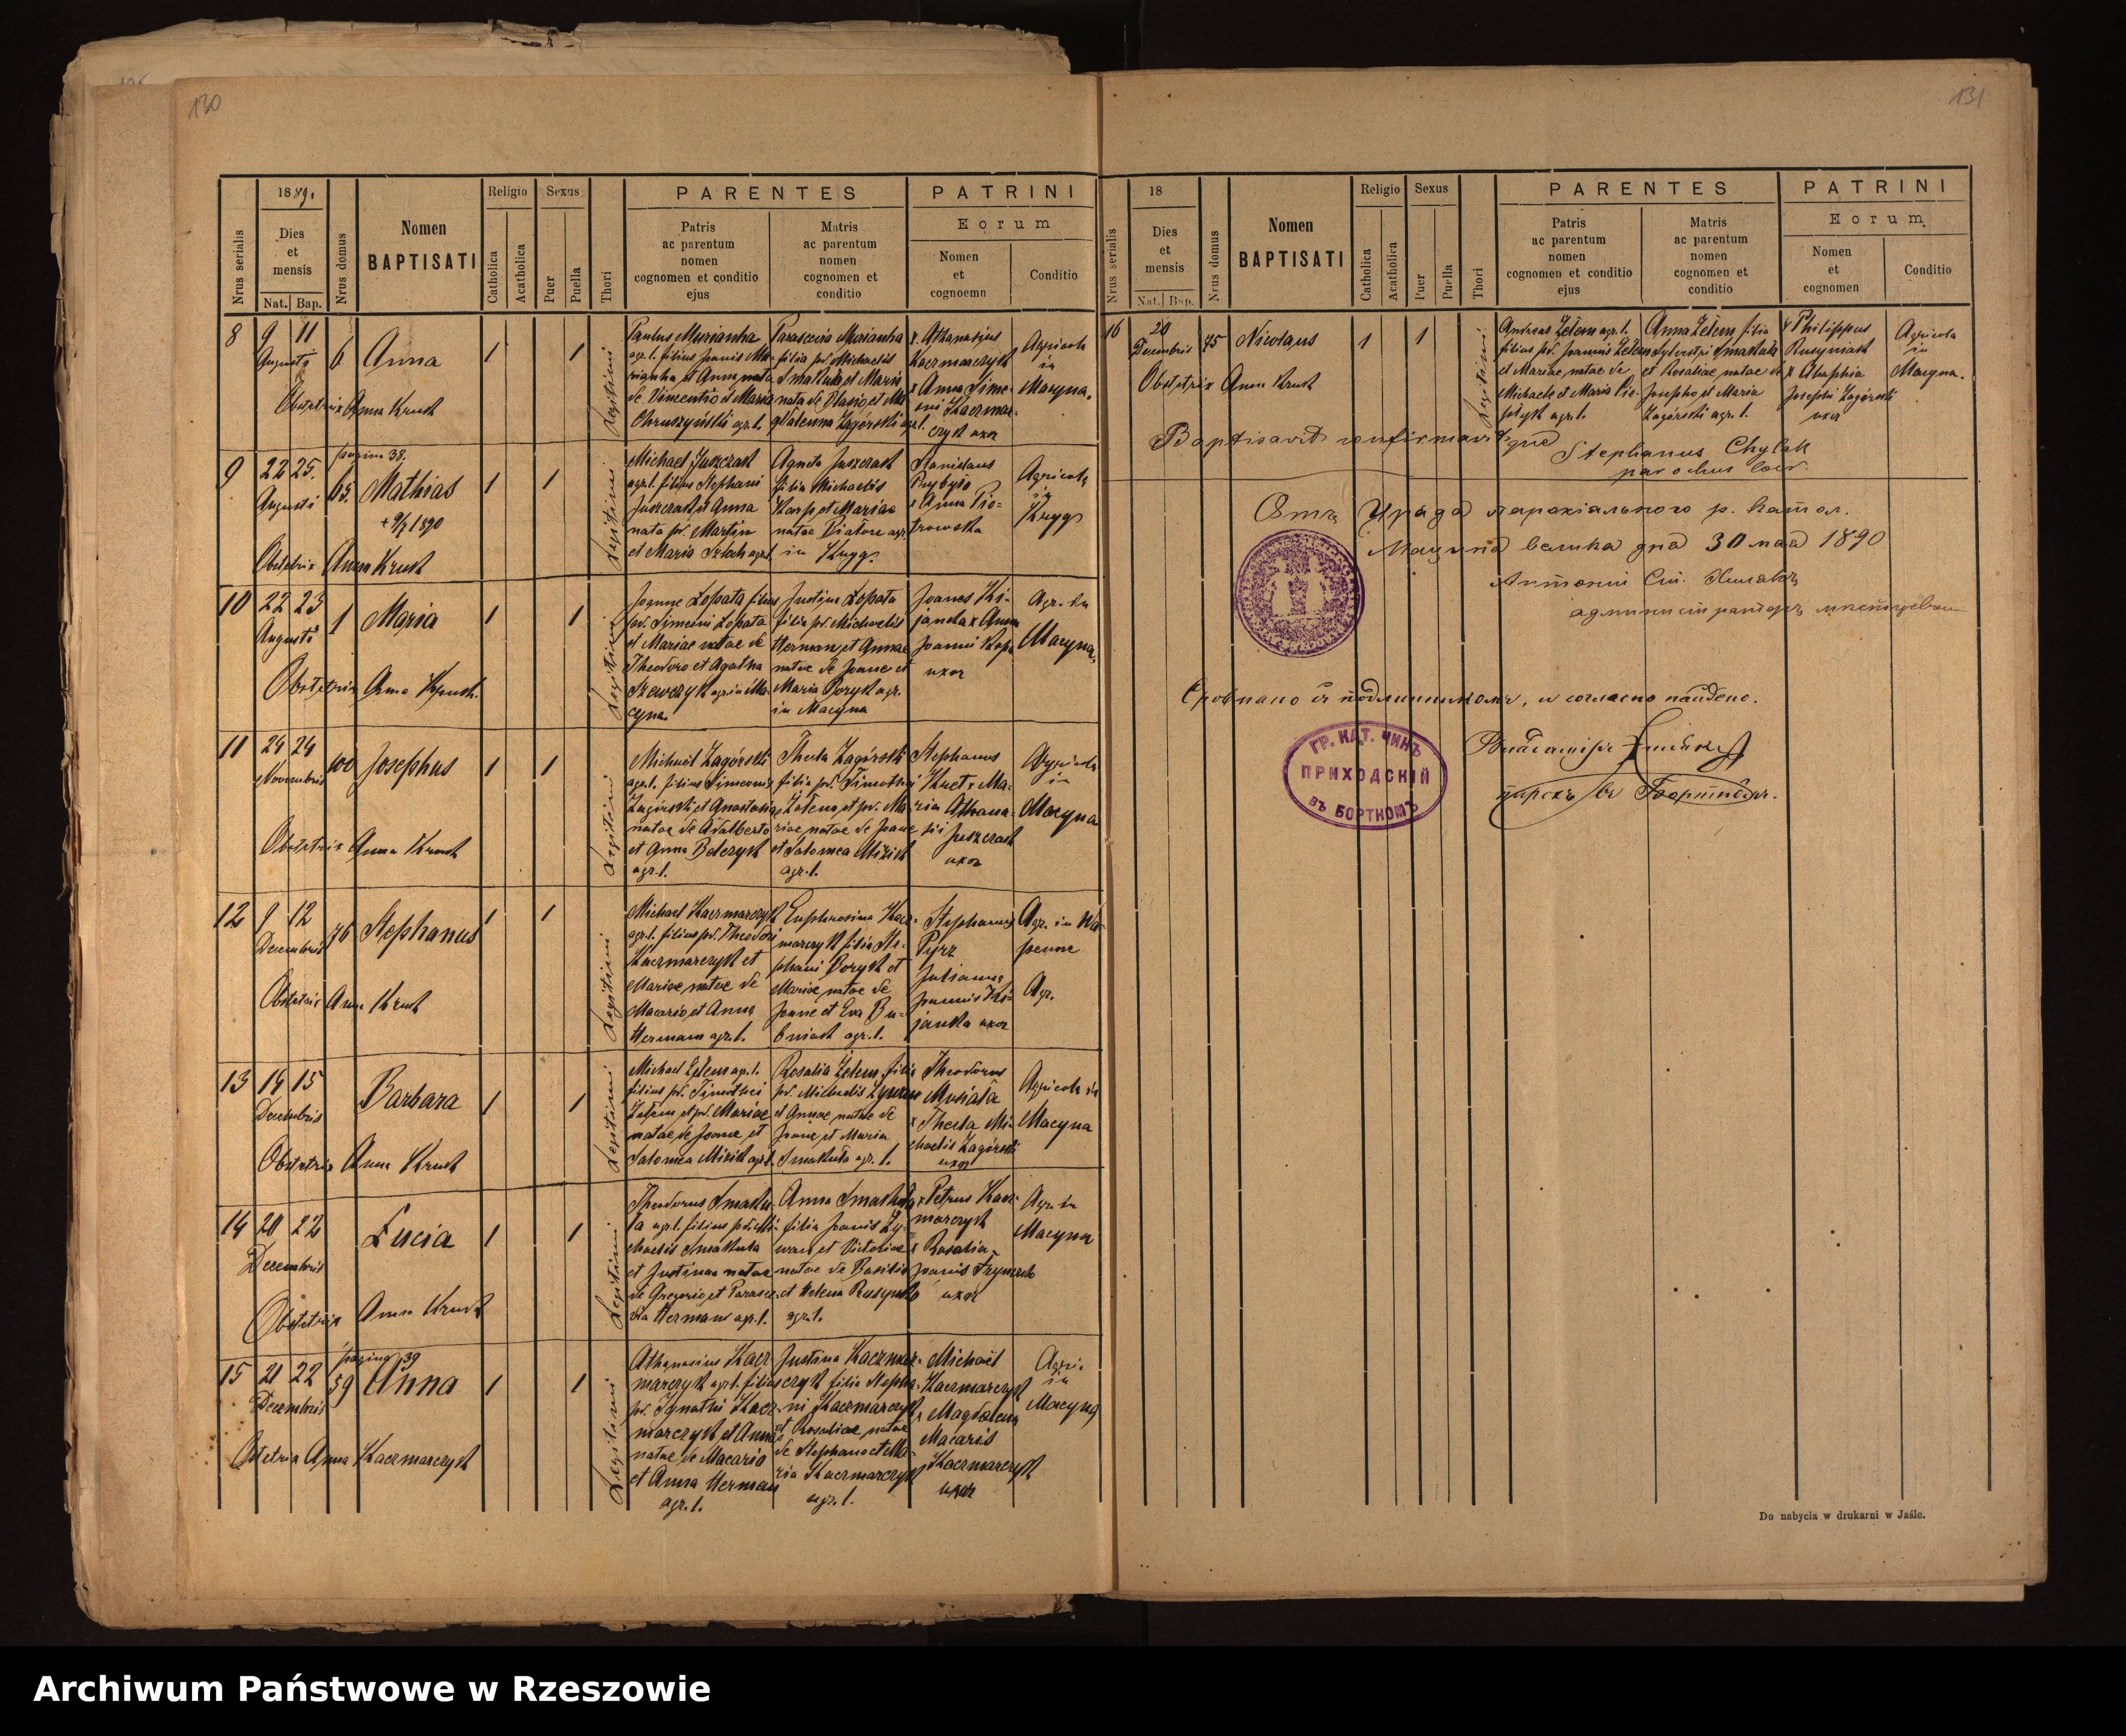 130
1889.
Nrus serialis
Dies
et
mensis
Nat. Bap.
Nrus domus
Nomen
BAPTISATI
Religio
Catholica
Acatholica
Sexus
Puer
Puella
Thori
PARENTES
Patris
ac parentum
nomen
cognomen et conditio
ejus
Matris
ac parentum
nomen
cognomen et
conditio
PATRINI
Eorum
Nomen
et
cognoemn
Conditio
8 9 11 6 Anna 1 1
Augusti
Obstetrix Anna Kruk
Legitimi
Paulus Murianka
agr. l. filius Joanis Mu-
rianka et Anna nata
de Vincentio et Maria
Chruszyński agr. l.
Parascevia Murianka
filia pd. Michaelis
Smakuła et Maria
nata de Blasio et Ma-
gdalenna Zagórski agr. l.
x Athanasius
Kaczmarczyk
x Anna Sime-
oni Kaczmar-
czyk uxor
Agricola
in
Macyna.
pagina 38.
9 22 25. 65. Mathias 1 1
Augusti
+ 9/7 1890
Obstetrix Anna Kruk
Legitimi
Michael Juszczak
agr. l. filius Stephani
Juszczak et Anna
nata pd. Martin
et Maria Szloch agr. l.
Agneta Juszczak
filia Michaelis
Karp et Mariae
natae Diaton agr.
in Kryg.
Stanislaus
Przybyło
x Anna Pio-
trowska
Agricola
in
Kryg
10 22 23 1 Maria 1 1
Augusti
Obstetrix Anna Kruk.
Legitimi
Joanne Łopata filius
pd. Simeoni Łopata
et Mariae natae de
Theodoro et Agatha
Szewczyk agr. in Ma-
cyna
Justina Łopata
filia pd. Michaelis
Herman et Annae
natae de Joanne et
Maria Boryk agr.
in Macyna
Joanes Ki-
janka x Anna
Joanni Kopa
uxor
Agr. in
Macyna.
11 24 24 100 Josephus 1 1
Novembris
Obstetrix Anna Kruk
Legitimi
Michaël Zagórski
agr. l. filius Simeonis
Zagórski et Anastasia
natae de Adalberto
et Anna Bolczyk
agr. l.
Thecla Zagórski
filia pd. Timothei
Żełem et pd. Ma-
riae natae de Joane
et Salomea Mizik
agr. l.
Stephanus
Kret x Ma-
ria Athana-
sii Juszczak
uxor
Agricola
in
Macyna
12 9 12 76 Stephanus 1 1
Decembris
Obstetrix Anna Kruk
Legitimi
Michael Kaczmarczyk
agr. l. filius pd. Theodori
Kaczmarczyk et
Mariae natae de
Macario et Anna
Herman agr. l.
Euphrosina Kacz-
marczyk filia Ste-
phani Boryk et
Mariae natae de
Joane et Eva Bu-
bniak agr. l.
Stephanus
Pyrz
Julianna
Joannis Ki-
janka uxor
Agr. in Wa-
penne
Agr.
13 14 15 Barbara 1 1
Decembris
Obstetrix Anna Kruk
Legitimi
Michael Żełem agr. l.
filius pd. Timothei
Żełem et pd. Mariae
natae de Joane et
Salomea Mizik agr. l.
Rosalia Żełem filia
pd. Michaelis Zywczak
et Annae natae de
Joane et Maria
Smakuła agr. l.
Theodorus
Musiała
x Thecla Mi-
chaelis Zagórski
uxor
Agricola in
Macyna
14 20 22 Lucia 1 1
Decembris
Obstetrix Anna Kruk
Legitimi
Theodorus Smaku-
ła agr. l. filius pd. Mi-
chaelis Smakuła
et Justinae natae
de Gregorio et Parasce-
via Herman agr. l.
Anna Smakuła
filia Joanis Zy-
wcu et Victoriae
natae de Basilio
et Helena Rusynko
agr. l.
x Petrus Kacz-
marczyk
x Rosalia
Joanis
uxor
Agr. in
Macyna
pagina 39
15 21 22 59 Anna 1 1
Decembris
Obstetrix Anna Kaczmarczyk
Legitimi
Athanasius Kacz-
marczyk agr. l. filius
pd. Ignathi Kacz-
marczyk et Anna
natae de Macario
et Anna Herman
agr. l.
Justina Kaczmar-
czyk filia Stepha-
ni Kaczmarczyk
et Rosaliae natae
de Stephano et Ma-
ria Kaczmarczyk
agr. l.
Michaël
Kaczmarczyk
x Magdalena
Macaris
Kaczmarczyk
uxor
Agri.
in
Macyna
131
18
Nrus serialis
Dies
et
mensis
Nat. Bap.
Nrus domus
Nomen
BAPTISATI
Religio
Catholica
Acatholica
Sexus
Puer
Puella
Thori
PARENTES
Patris
ac parentum
nomen
cognomen et conditio
ejus
Matris
ac parentum
nomen
cognomen et
conditio
PATRINI
Eorum
Nomen
et
cognomen
Conditio
16 20 75 Nicolaus 1 1
Decembris
Obstetrix Anna Kruk
Legitimi
Andreas Żełem agr. l.
filius pd. Joannis Żełem
et Mariae natae de
Michaele et Maria
agr. l.
Anna Żełem filia
Sylvestri Smakuła
et Rosaliae natae de
Josepho et Maria
Zagórski agr. l.
x Philippus
Rusyniak
x Ahaphia
Josephi Zagórski
uxor
Agricola
in
Macyna.
Baptisavit confirmavitque
Stephanus Chylak
parochus loci
Отъ Уряда парохіального гр. катол.
Мацина велика дня 30 мая 1890
Антоній Хилякъ
администраторъ
Сровнано съ подлинникомъ, и согласно найдено.
ГР. КАТ. ЧИНЪ
ПРИХОДСКІЙ
ВЪ БОРТНОМЪ
парохъ въ Бортномъ.
Do nabycia w drukarni w Jaśle.
Archiwum Państwowe w Rzeszowie